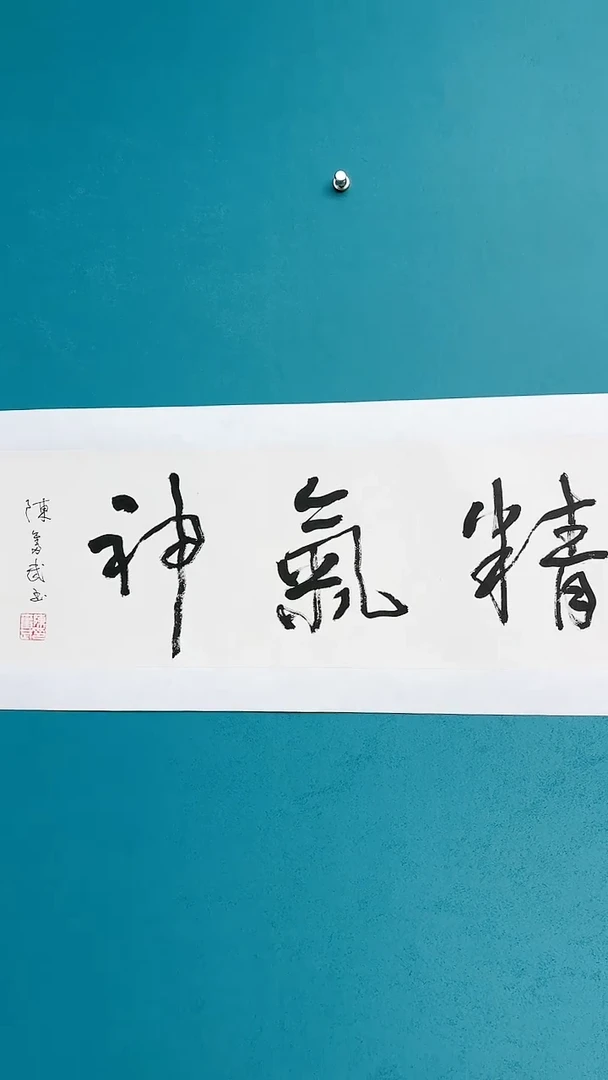 精氣神
陳
武书